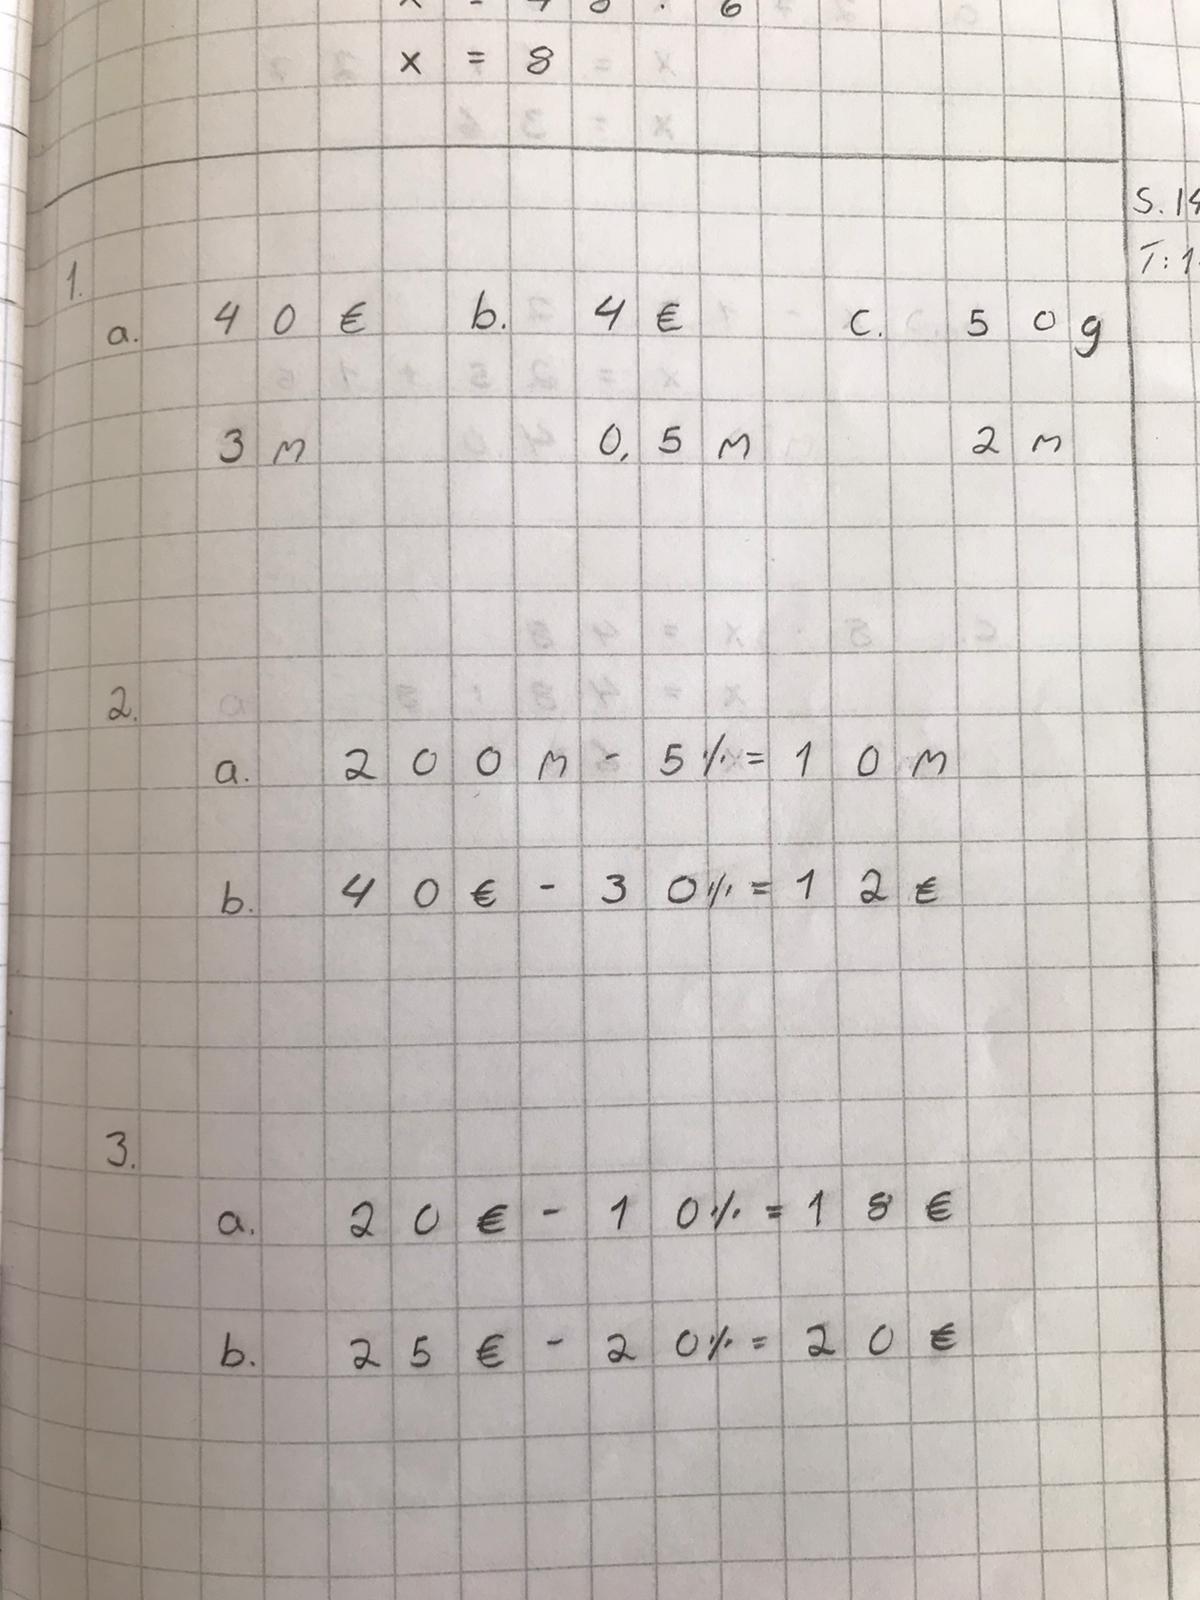 x = 8
S. 14
T: 1
1.
a. 40 € b. 4 € c. 50 g
3 m 0,5 m 2 m
2.
a. 200 m - 5 % = 10 m
b. 40 € - 30 % = 12 €
3.
a. 20 € - 10 % = 18 €
b. 25 € - 20 % = 20 €